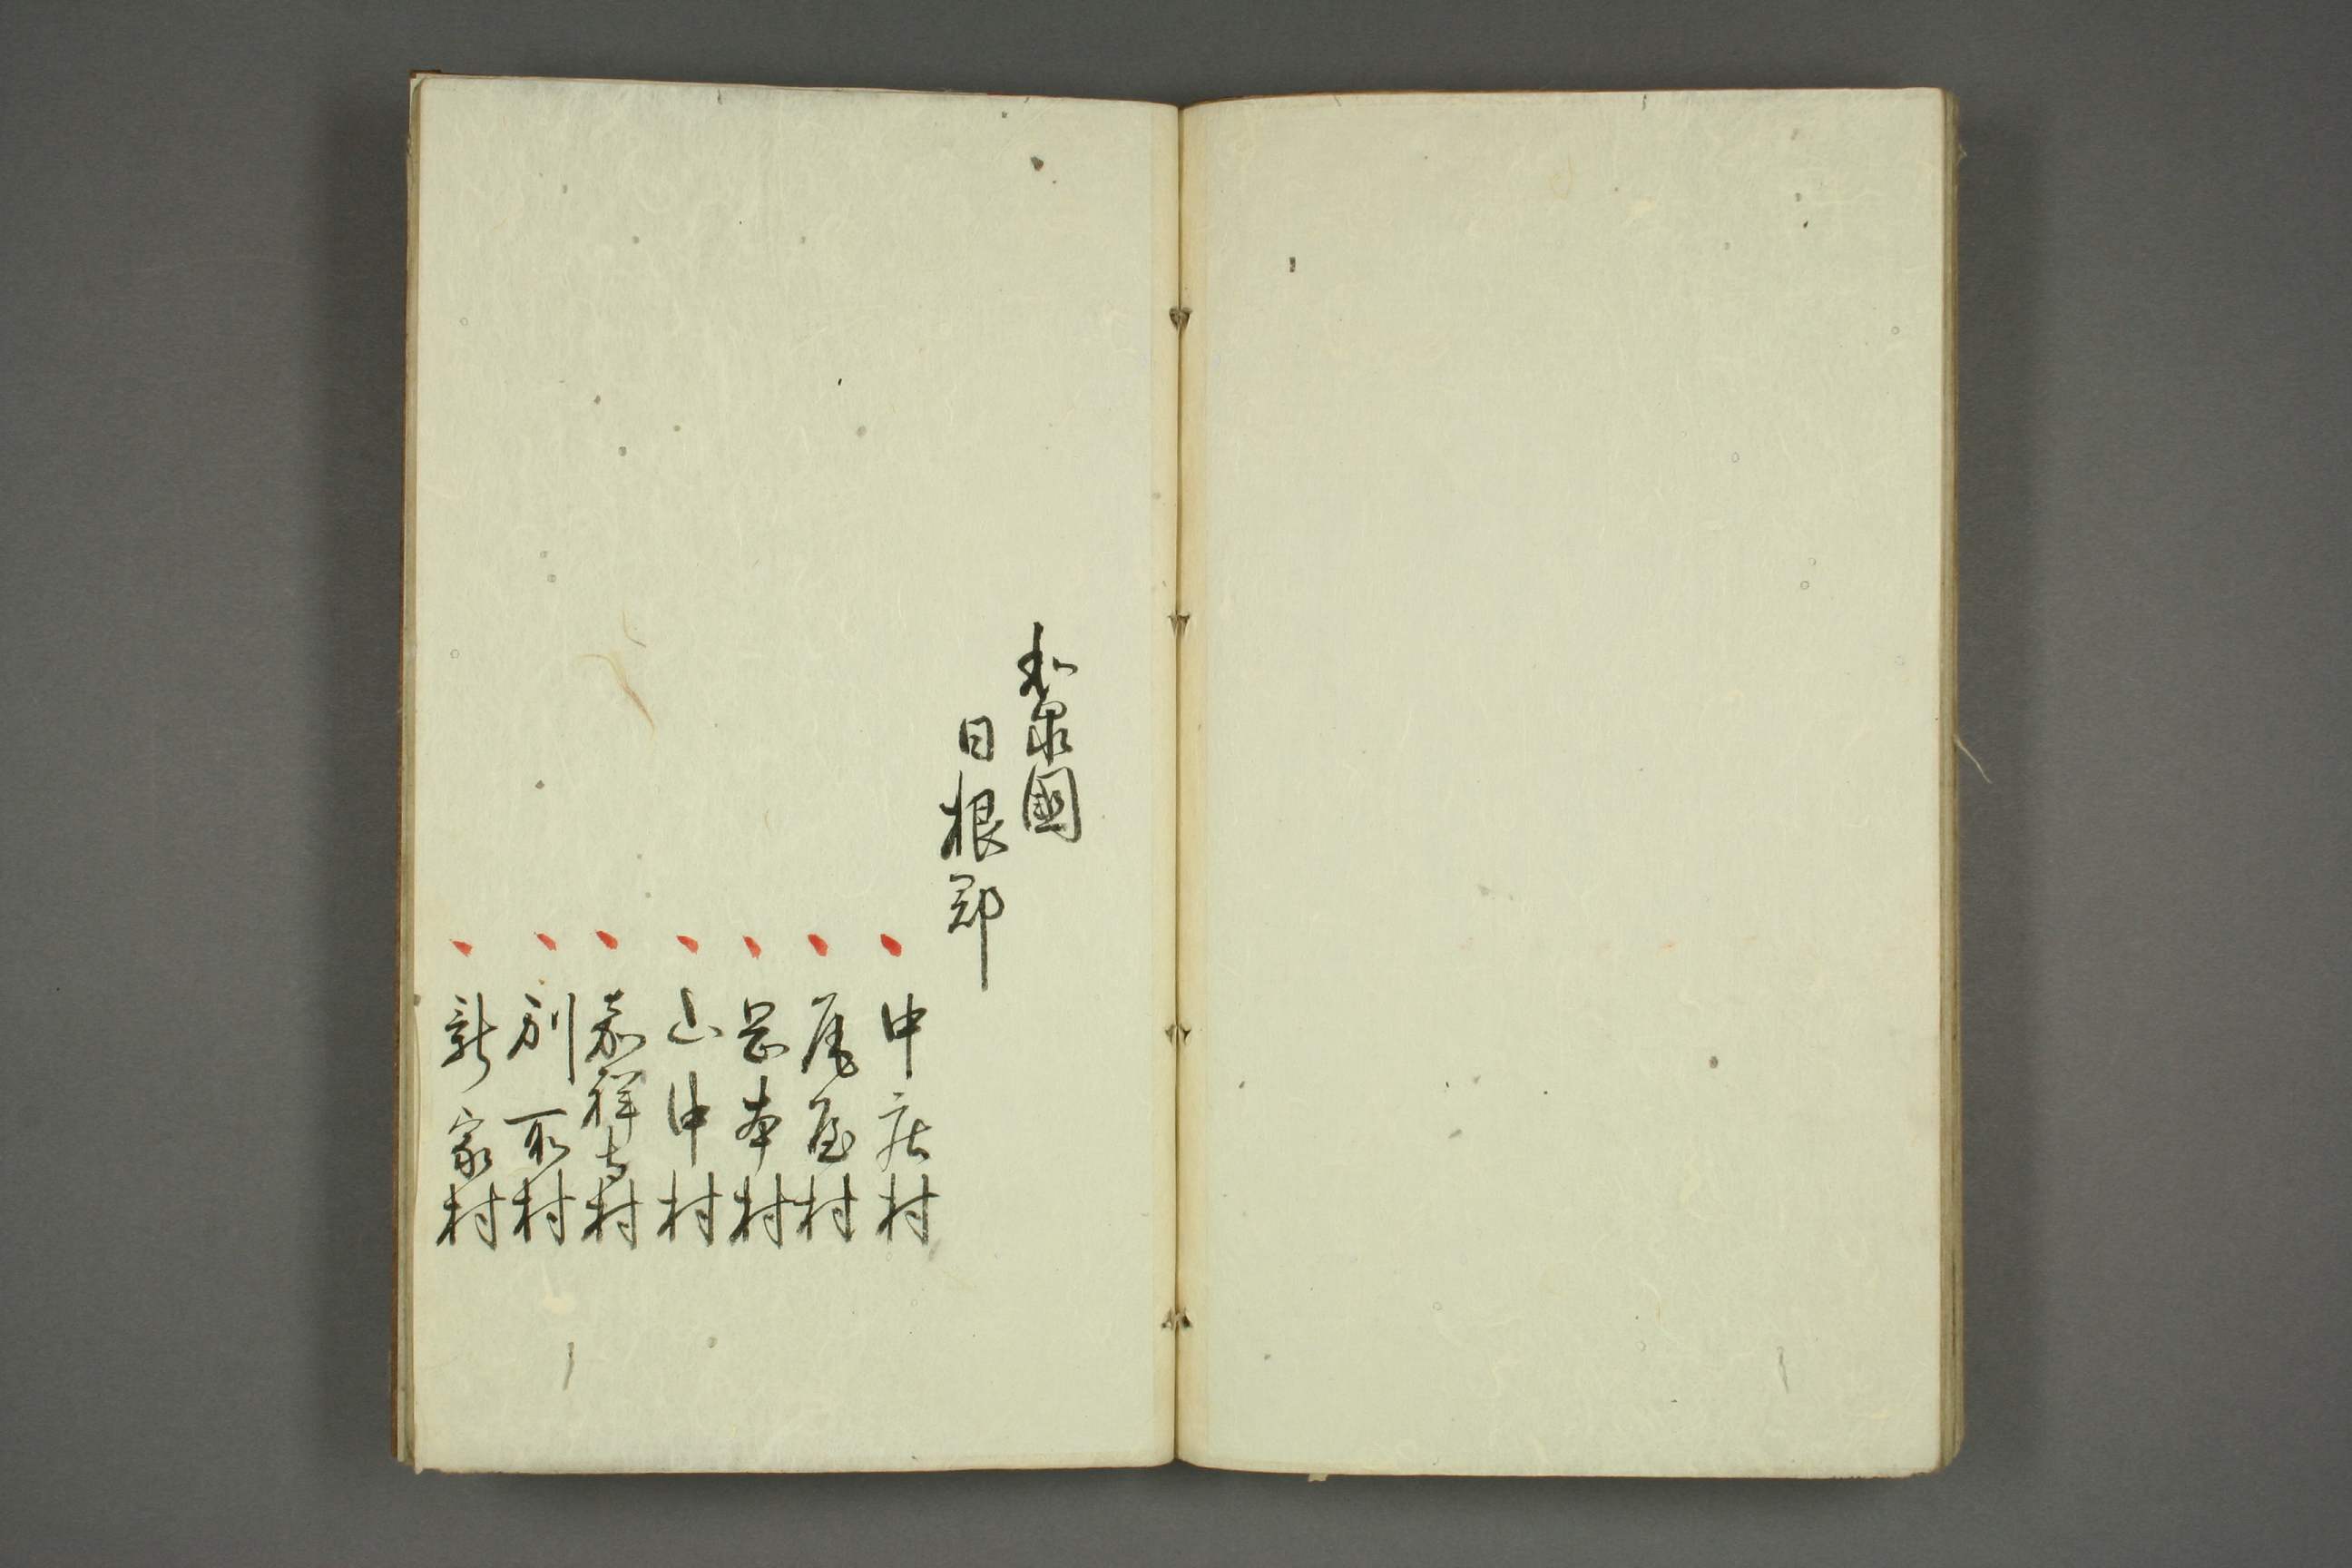 和泉國
日根郡
中庄村
尾屋村
岡本村
山中村
嘉祥寺村
別所村
新家村